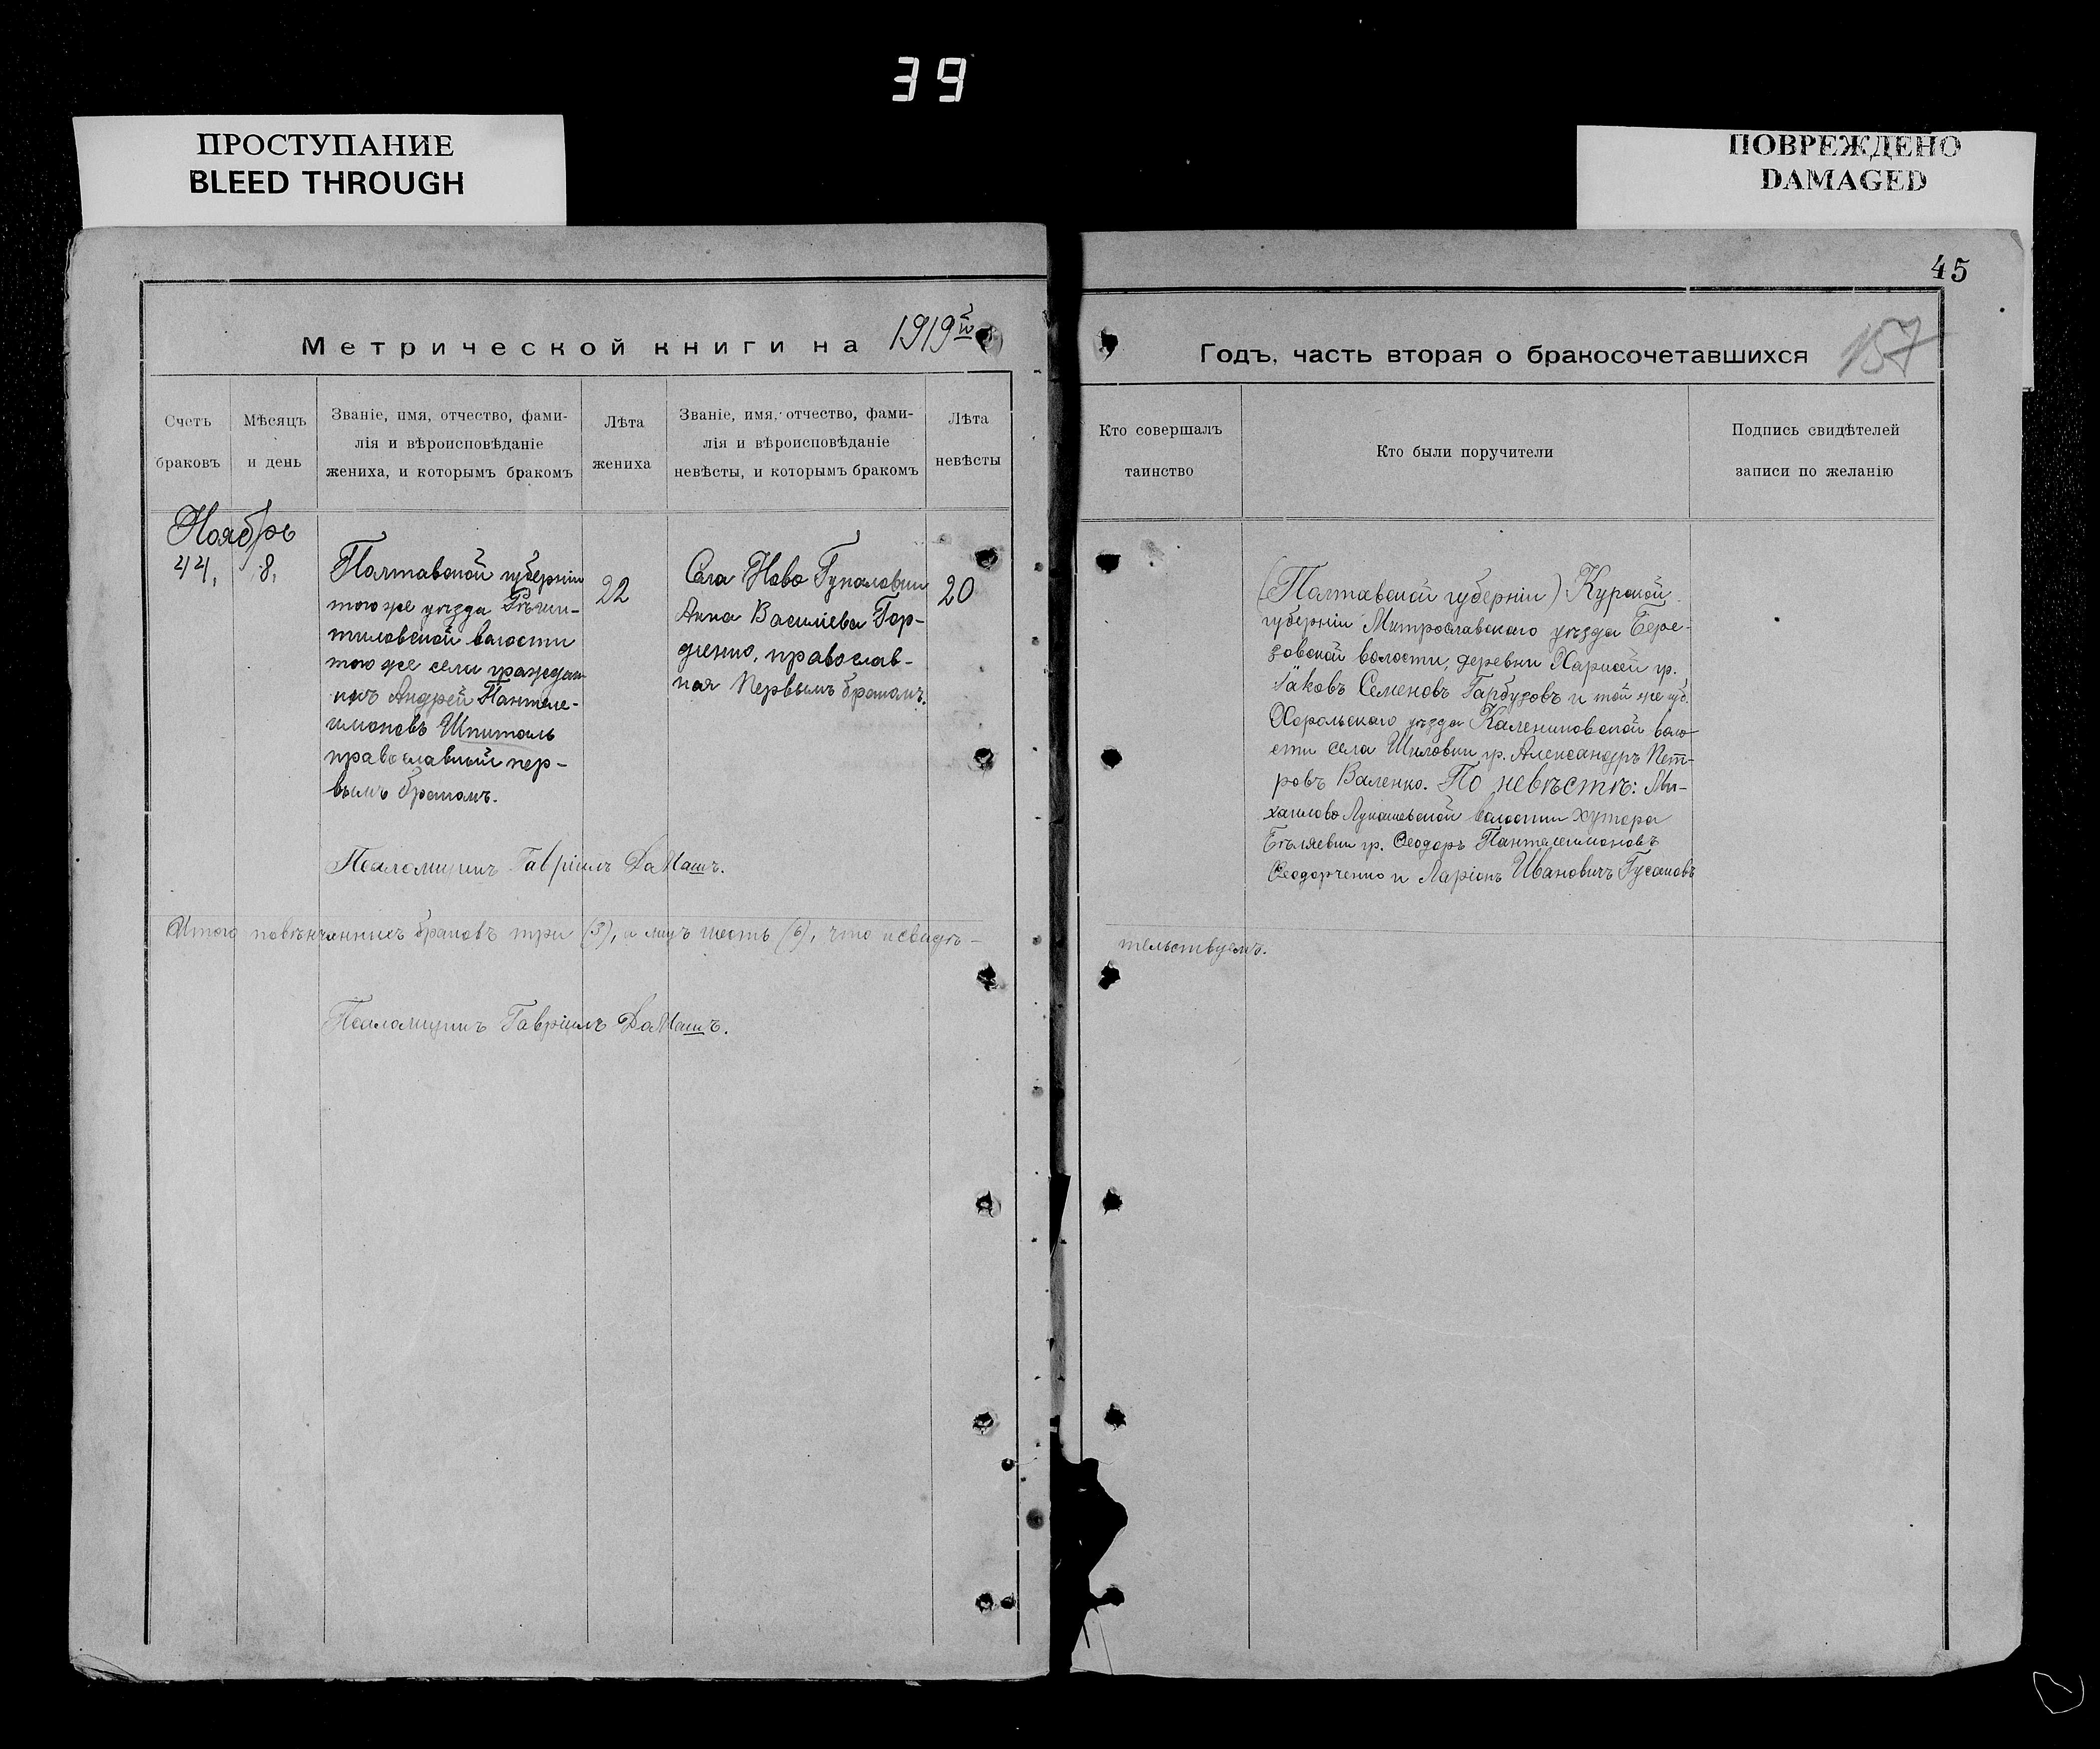 39
ПРОСТУПАНИЕ
BLEED THROUGH
ПОВРЕЖДЕНО
DAMAGED
45
Метрической книги на 1919й
Годъ, часть вторая о бракосочетавшихся
157
Счетъ браковъ
Мѣсяцъ и день
Званіе, имя, отчество, фами-
лія и вѣроисповѣданіе
жениха, и которымъ бракомъ
Лѣта жениха
Званіе, имя, отчество, фами-
лія и вѣроисповѣданіе
невѣсты, и которымъ бракомъ
Лѣта невѣсты
Кто совершалъ таинство
Кто были поручители
Подпись свидѣтелей
записи по желанію
Ноябрь
44,
8,
Полтавской губерніи
того же уѣзда
тиловской волости
того же села граждан-
инъ Андрей Пантеле-
имоновъ Шпиталь
православный пер-
вымъ бракомъ.
22
Села Ново Гупаловки
Анна Василіева Гор-
діенко, православ-
ная первымъ бракомъ.
20
(Полтавской губерніи) Курской
губерніи Митрославскаго уѣзда Бере-
зовской волости, деревни гр.
Іаковъ Семеновъ Гарбузовъ и той же губ.
Хорольскаго уѣзда Калениковской воло-
сти села Шиловки гр. Александръ Пет-
ровъ Валенко. По невѣстѣ: Ми-
хайлово Лукашевской волости хутора
Бѣляевки гр. Ѳеодоръ Пантелеимоновъ
Ѳеодорченко и Ларіонъ Ивановичъ Гусаковъ
Псаломщикъ Гавріилъ ДаМашъ.
Итого повѣнчанныхъ браковъ три (3), а лицъ шесть (6), что и свидѣ-
тельствуемъ.
Псаломщикъ Гавріилъ ДаМашъ.